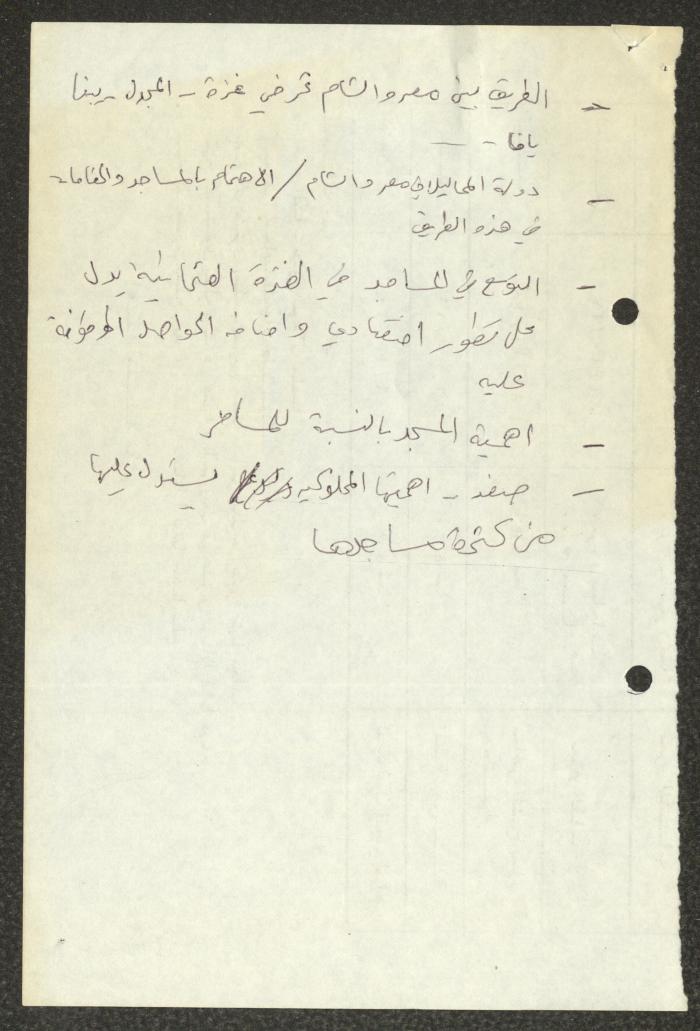 - الطريق بين مصر والشام تمر في غزة - المجدل - يبنا
يافا - -
- دولة المماليك في مصر والشام / الاهتمام بالمساجد والمقامات
في هذه الطريق
- التوسع في المساجد في الفترة العثمانية يدل
على تطور اقتصادي واضافة الحواصل الموقوفة
عليه
- اهمية المسجد بالنسبة للمسافر
- صفد - اهميتها المملوكيه يستدل عليها
من كثرة مساجدها